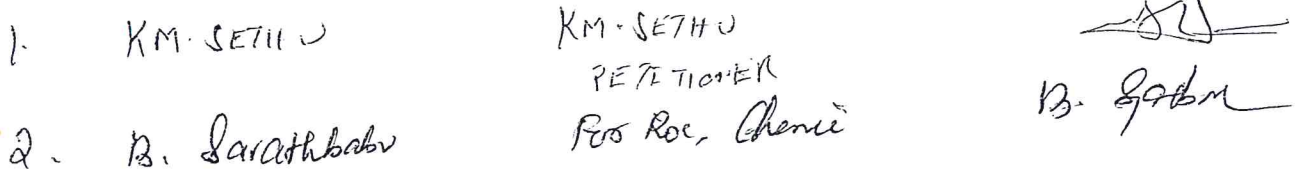 1. KM. SETHU KM. SETHU
PETITIONER
2. B. Sarathbabu For RoC, Chennai B.